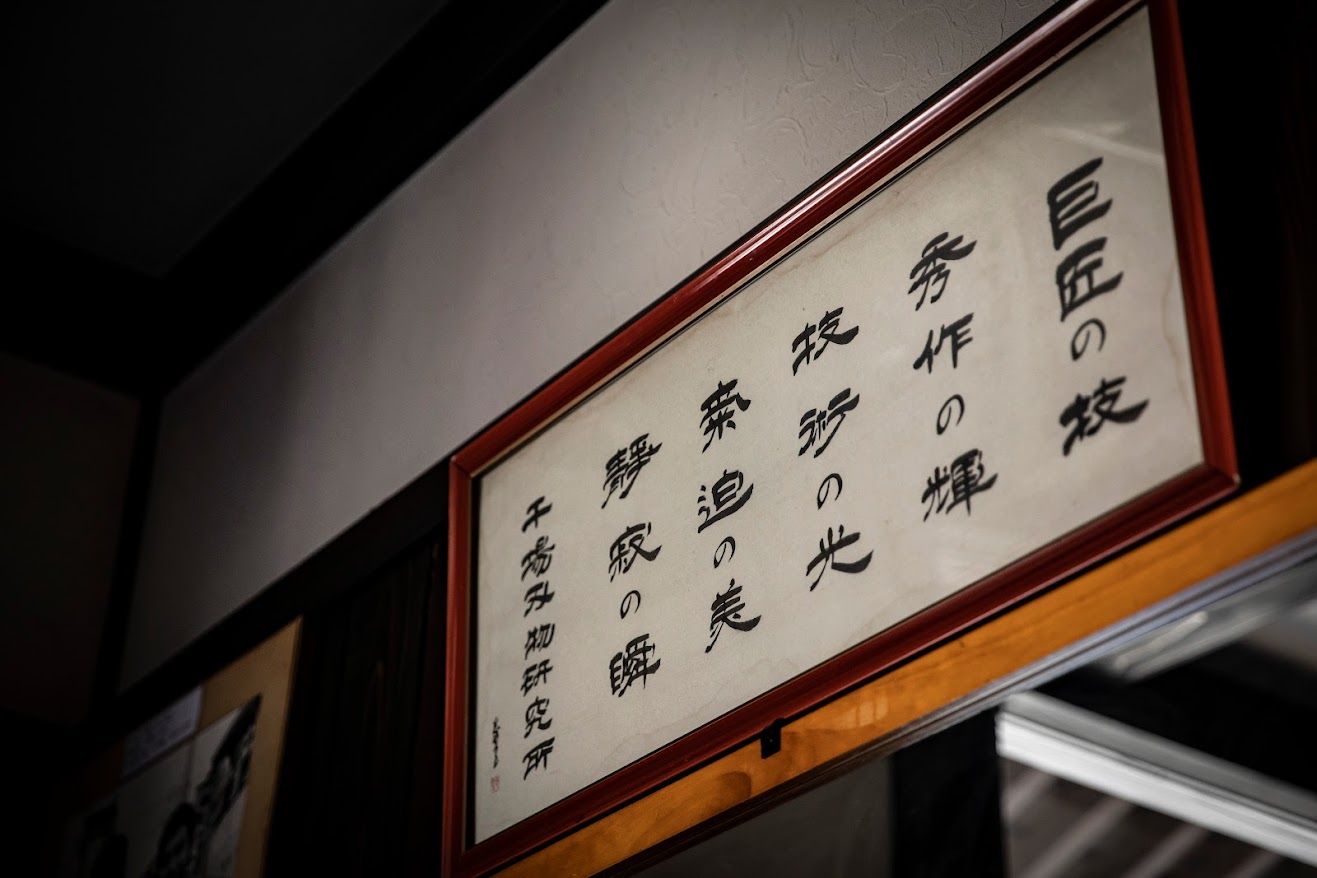 巨匠の技
秀作の輝
技術の光
迫の美
靜寂の瞬
千場刃物研究所